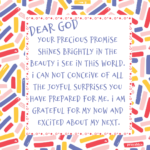 DEAR GOD
YOUR PRECIOUS PROMISE
SHINES BRIGHTLY IN THE
BEAUTY I SEE IN THIS WORLD.
I CAN NOT CONCEIVE OF ALL
THE JOYFUL SURPRISES YOU
HAVE PREPARED FOR ME. I AM
GRATEFUL FOR MY NOW AND
EXCITED ABOUT MY NEXT.